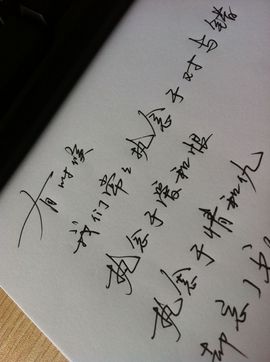 有时候
我们常常执念于对与错
执念于爱和恨
执念于情和仇
却忘了